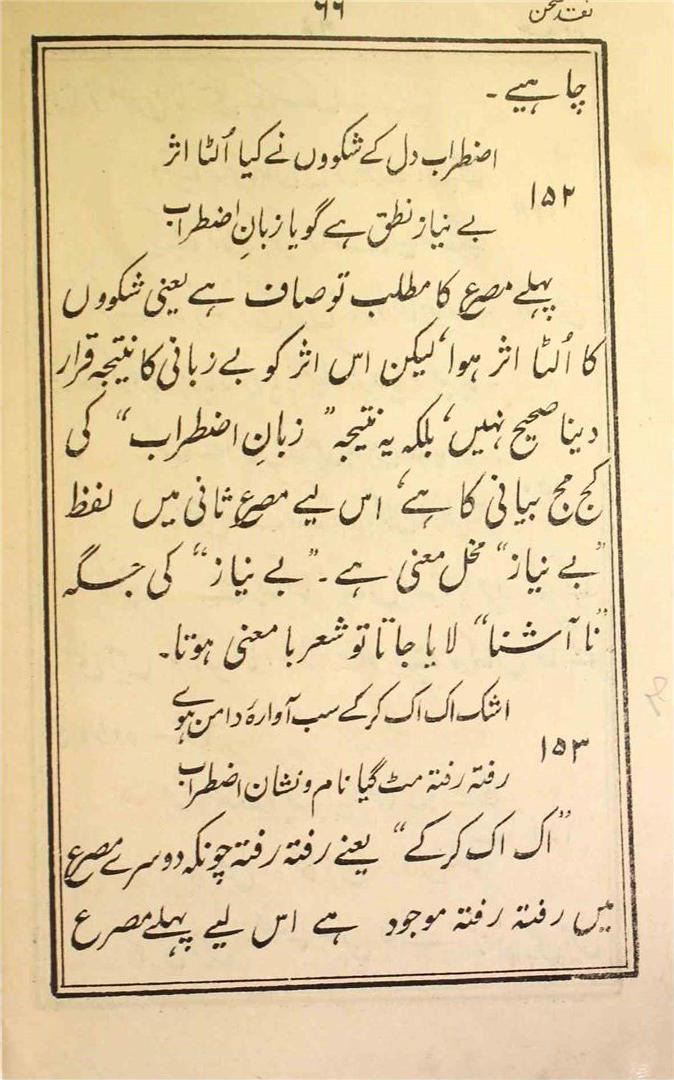 نقد سخن
۶۶
چاہیے۔
اضطراب دل کے شکووں نے کیا اُلٹا اثر
۱۵۲
بے نیاز نطق ہے گویا زبانِ اضطراب
پہلے مصرع کا مطلب تو صاف ہے یعنی شکووں
کا اُلٹا اثر ہوا، لیکن اس اثر کو بے زبانی کا نتیجہ قرار
دینا صحیح نہیں، بلکہ یہ نتیجہ "زبانِ اضطراب" کی
کج مج بیانی کا ہے، اس لیے مصرع ثانی میں لفظ
"بے نیاز" مخل معنی ہے۔ "بے نیاز" کی جگہ
"نا آشنا" لایا جاتا تو شعر با معنی ہوتا۔
اشک اک اک کرکے سب آوارۂ دامن ہوے
۱۵۳
رفتہ رفتہ مٹ گیا نام و نشان اضطراب
"اک اک کرکے" یعنے رفتہ رفتہ چونکہ دوسرے مصرع
میں رفتہ رفتہ موجود ہے اس لیے پہلے مصرع